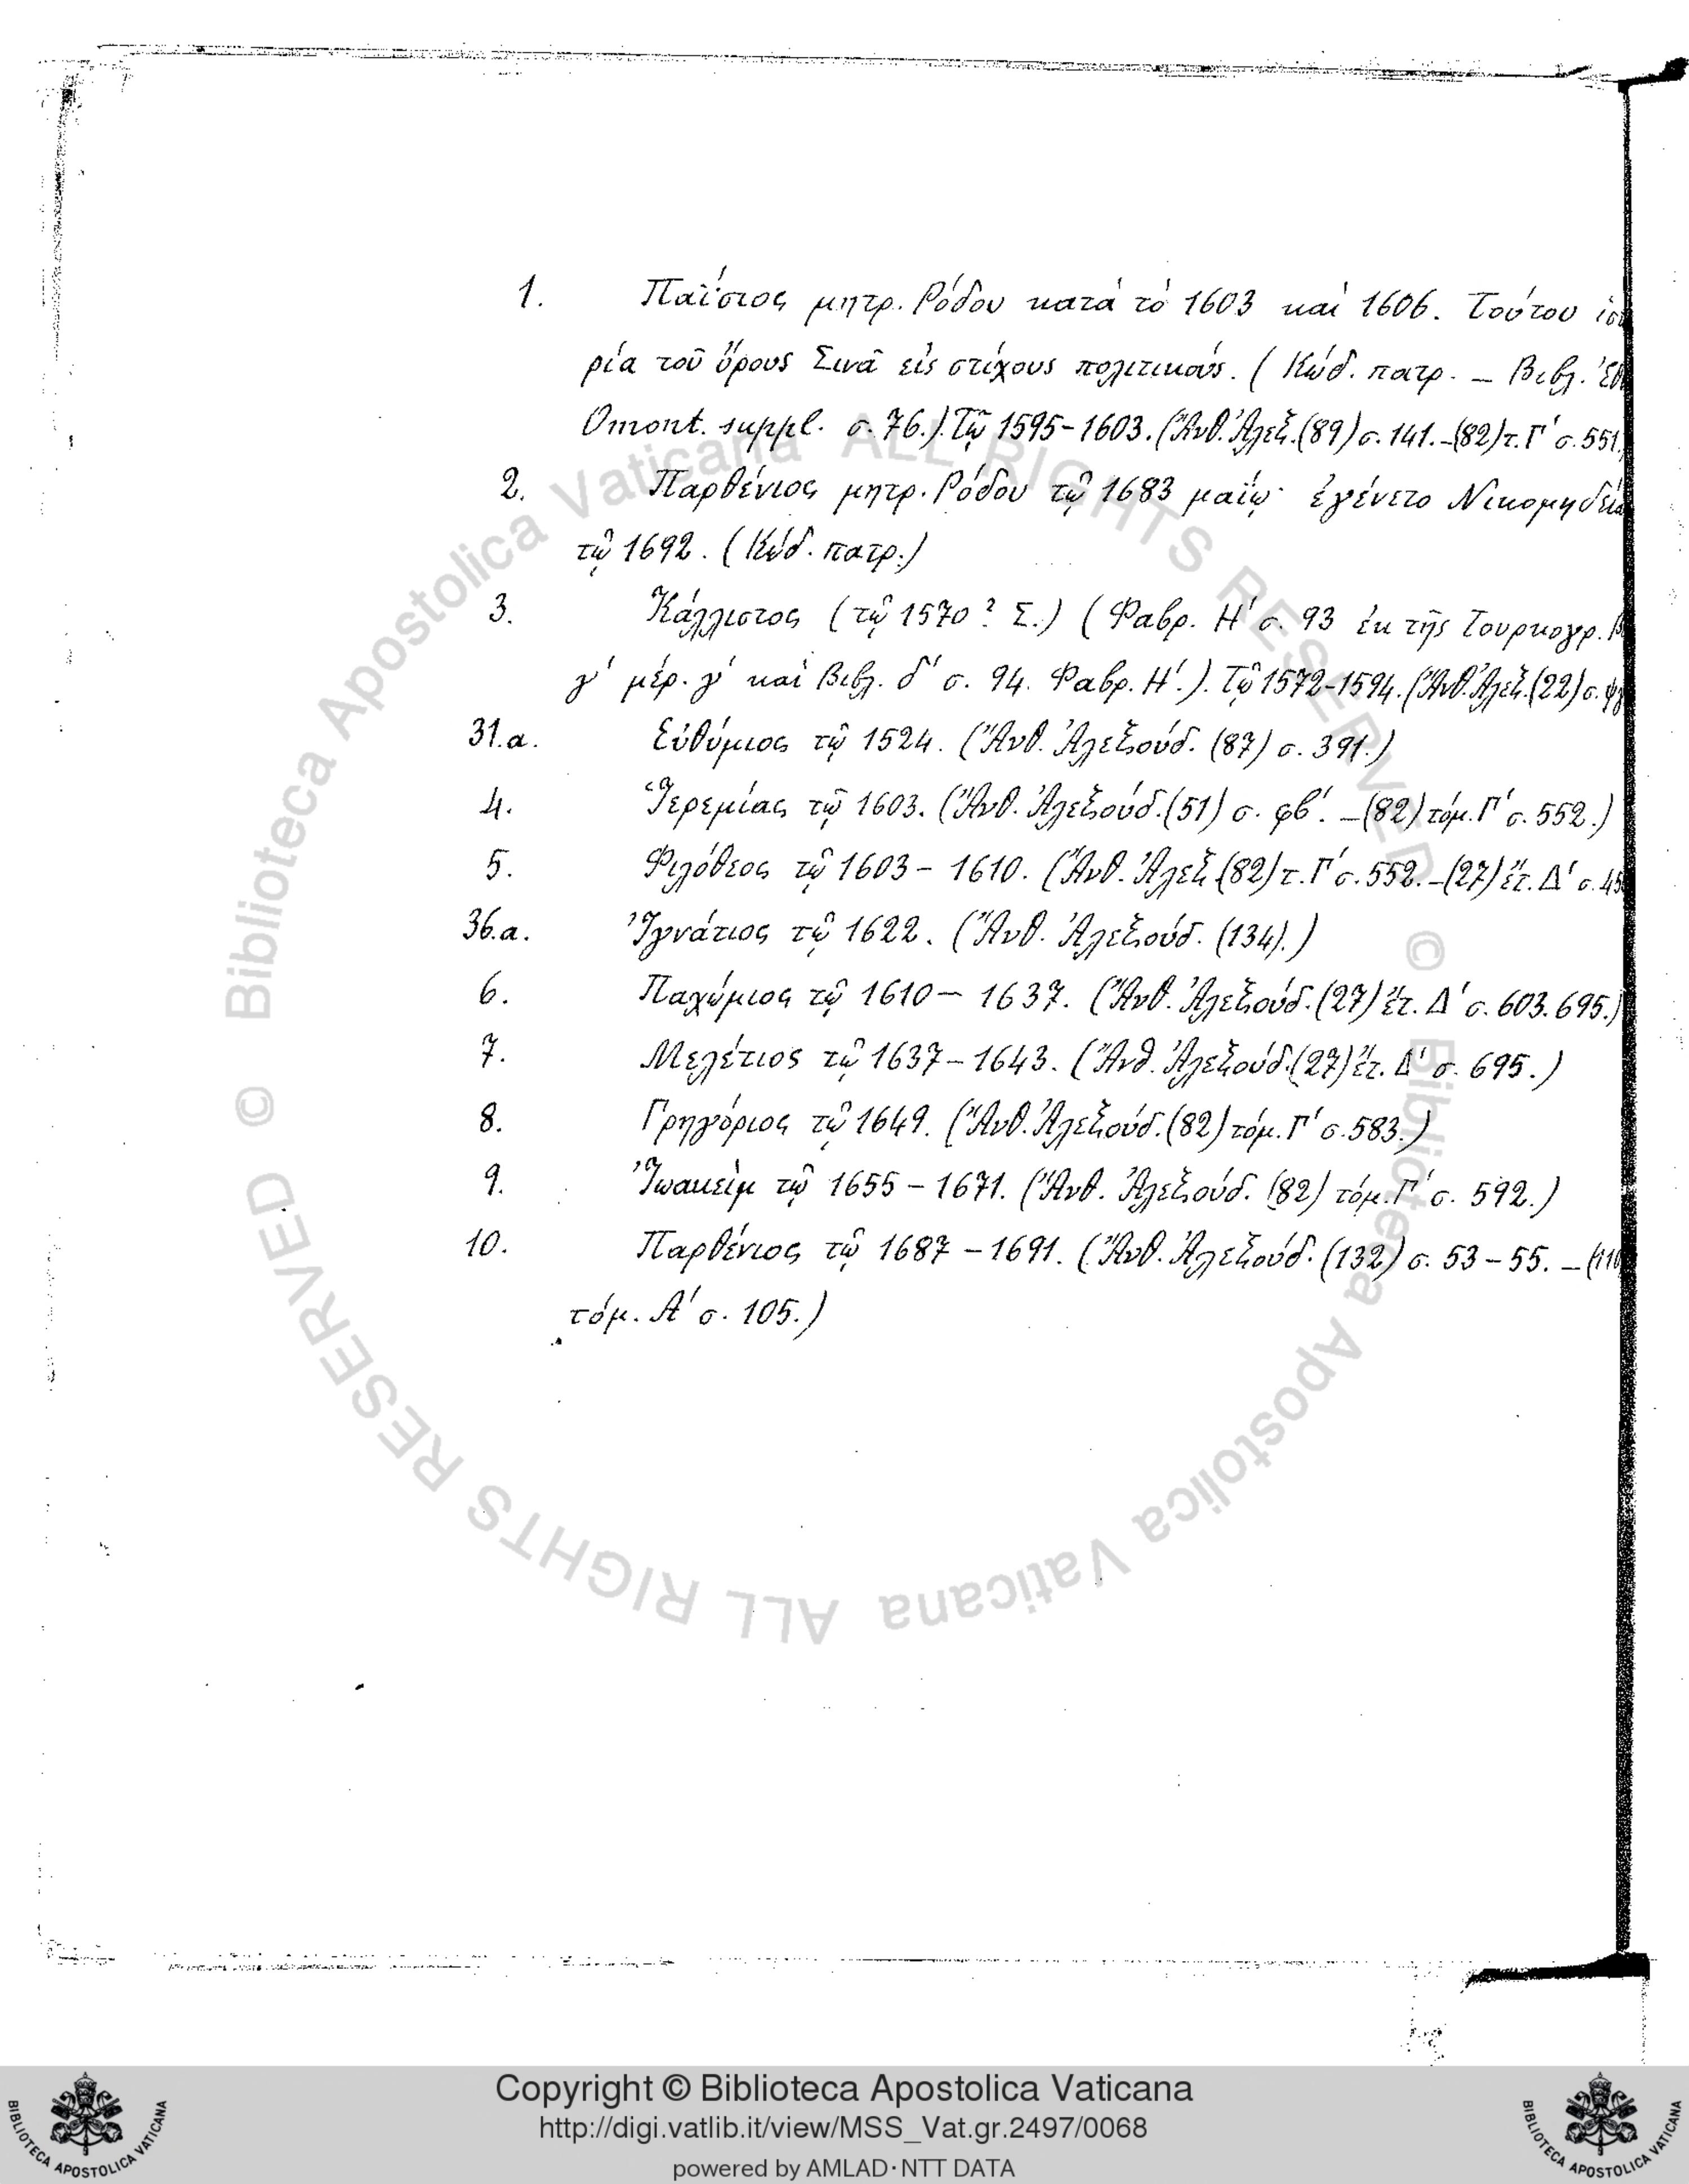 1. Παΐσιος μητρ. Ρόδου κατά τό 1603 καί 1606. Τούτου
ρία τοῦ ὄρους Σινᾶ εἰς στίχους πολιτικούς. (Κώδ. πατρ. – Βιβλ.
Omont. suppl. σ. 76.). Τῷ 1595-1603. (Ἀνθ. Ἀλεξ. (89) σ. 141. – (82) τ. Γ' σ. 551.
2. Παρθένιος μητρ. Ρόδου τῷ 1683 μαΐῳ· ἐγένετο
τῷ 1692. (Κώδ. πατρ.)
3. Κάλλιστος (τῷ 1570? Σ.) (Φαβρ. Η' σ. 93 ἐκ τῆς Τουρκογρ.
γ' μέρ. γ' καί Βιβλ. δ' σ. 94. Φαβρ. Η'.). Τῷ 1572-1594. (Ἄνθ. Ἀλεξ. (22) σ.
31.a. Εὐθύμιος τῷ 1524. (Ἄνθ. Ἀλεξούδ. (87) σ. 391.)
4. Ἱερεμίας τῷ 1603. (Ἄνθ. Ἀλεξούδ. (51) σ. φβ'. – (82) τόμ. Γ' σ. 552.)
5. Φιλόθεος τῷ 1603 – 1610. (Ἄνθ. Ἀλεξ. (82) τ. Γ' σ. 552. – (27) ἔτ. Δ' σ.
36.a. Ἰγνάτιος τῷ 1622. (Ἄνθ. Ἀλεξούδ. (134).)
6. Παχώμιος τῷ 1610 – 1637. (Ἄνθ. Ἀλεξούδ. (27) ἔτ. Δ' σ. 603. 695.)
7. Μελέτιος τῷ 1637 – 1643. (Ἄνθ. Ἀλεξούδ. (27) ἔτ. Δ' σ. 695.)
8. Γρηγόριος τῷ 1649. (Ἄνθ. Ἀλεξούδ. (82) τόμ. Γ' σ. 583.)
9. Ἰωακείμ τῷ 1655 – 1671. (Ἄνθ. Ἀλεξούδ. (82) τόμ. Γ' σ. 592.)
10. Παρθένιος τῷ 1687 – 1691. (Ἄνθ. Ἀλεξούδ. (132) σ. 53 – 55. –
τόμ. Α' σ. 105.)
© Biblioteca Apostolica Vaticana ALL RIGHTS RESERVED
© Biblioteca Apostolica Vaticana ALL RIGHTS RESERVED
Copyright © Biblioteca Apostolica Vaticana
http://digi.vatlib.it/view/MSS_Vat.gr.2497/0068
powered by AMLAD·NTT DATA
BIBLIOTECA APOSTOLICA VATICANA
BIBLIOTECA APOSTOLICA VATICANA